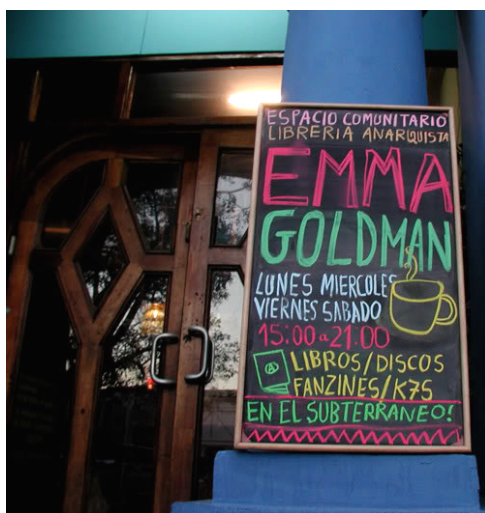 ESPACIO COMUNITARIO
LIBRERIA ANARQUISTA
EMMA
GOLDMAN
LUNES MIERCOLES
VIERNES SABADO
15:00 a 21:00
A LIBROS/DISCOS
FANZINES/K7S
EN EL SUBTERRANEO!